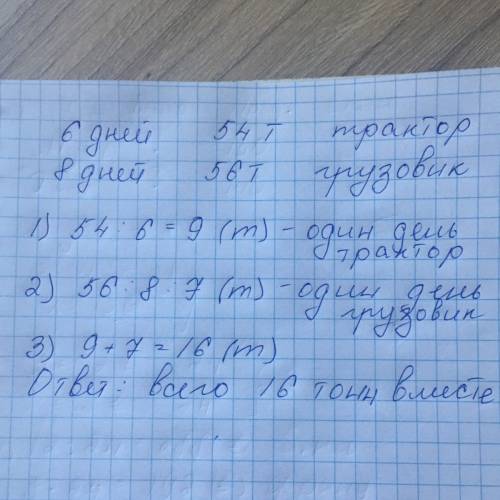 6 дней 54 т трактор
8 дней 56т грузовик
1) 54 : 6 = 9 (т) - один день
трактор
2) 56 : 8 : 7 (т) - один день
грузовик
3) 9 + 7 = 16 (т)
Ответ: всего 16 тонн вместе